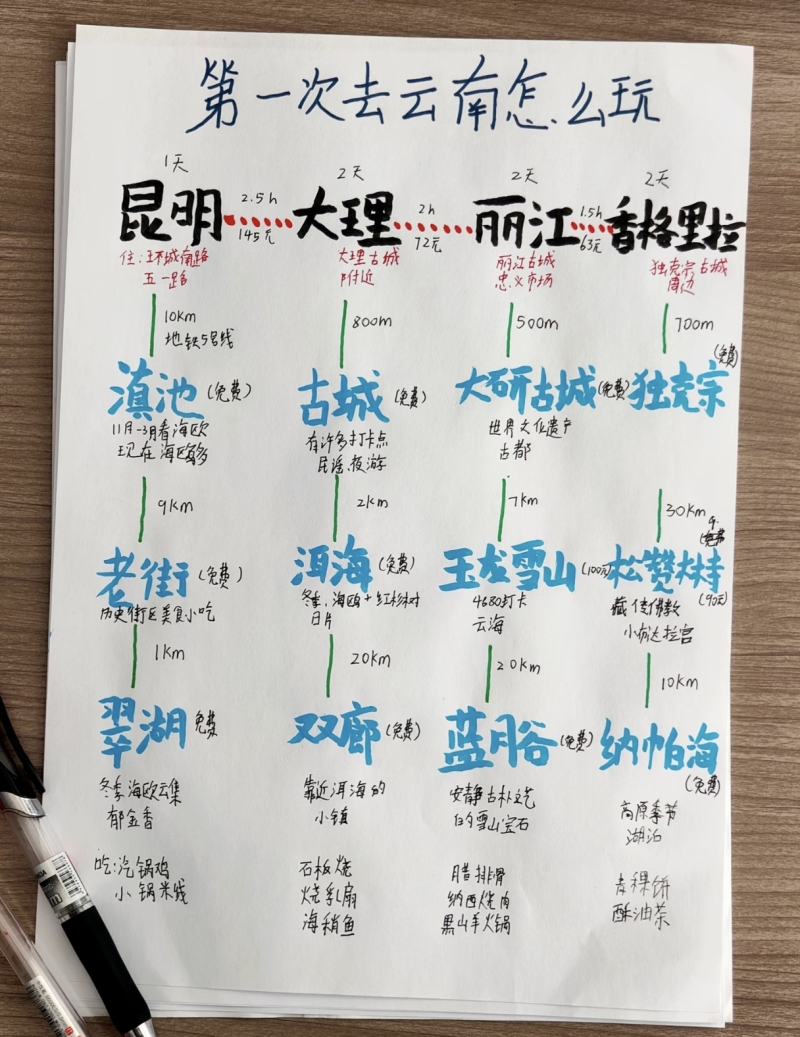 第一次去云南怎么玩
1天
2天
2天
2天
昆明
2.5h
145元
大理
2h
72元
丽江
1.5h
63元
香格里拉
住:环城南路
五一路
大理古城
附近
丽江古城
忠义市场
独克宗古城
周边
10km
地铁5号线
800m
500m
700m
滇池(免费)
古城(免费)
大研古城(免费)
独克宗(免费)
11月-3月看海欧
现在海欧多
有许多打卡点
民谣、夜游
世界文化遗产
古都
9km
2km
7km
30km
老街(免费)
洱海(免费)
玉龙雪山(100元)
松赞林寺(90元)
历史街区美食小吃
冬季:海鸥+红杉树
日片
4680打卡
云海
藏传佛教
小布达拉宫
1km
20km
20km
10km
翠湖免费
双廊(免费)
蓝月谷(免费)
纳帕海(免费)
冬季海欧云集
郁金香
靠近洱海的
小镇
安静古朴文艺
的雪山宝石
高原季节
湖泊
吃:汽锅鸡
小锅米线
石板烧
烧乳扇
海稍鱼
腊排骨
纳西烤肉
黑山羊火锅
青稞饼
酥油茶